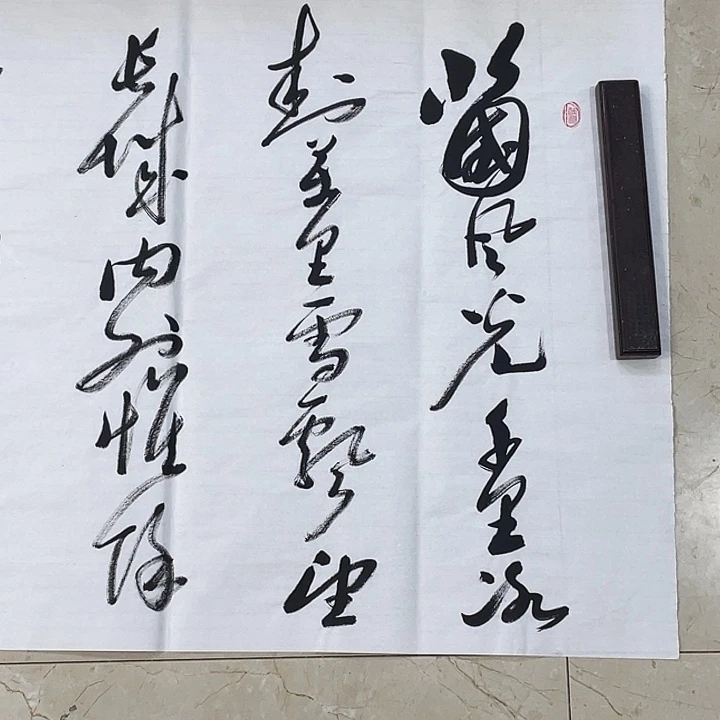 北國风光千里冰
封萬里雪飘望
长城内外惟馀